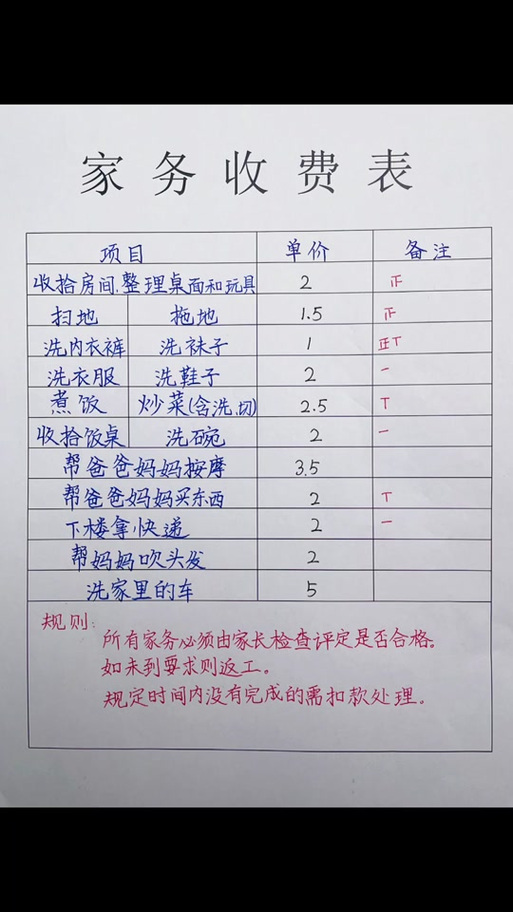 家务收费表
项目 单价 备注
收拾房间.整理桌面和玩具 2 正
扫地 拖地 1.5 正
洗内衣裤 洗袜子 1 正丅
洗衣服 洗鞋子 2 一
煮饭 炒菜(含洗.切) 2.5 丅
收拾饭桌 洗碗 2 一
帮爸爸妈妈按摩 3.5
帮爸爸妈妈买东西 2 丅
下楼拿快递 2 一
帮妈妈吹头发 2
洗家里的车 5
规则:
所有家务必须由家长检查评定是否合格。
如未到要求则返工。
规定时间内没有完成的需扣款处理。